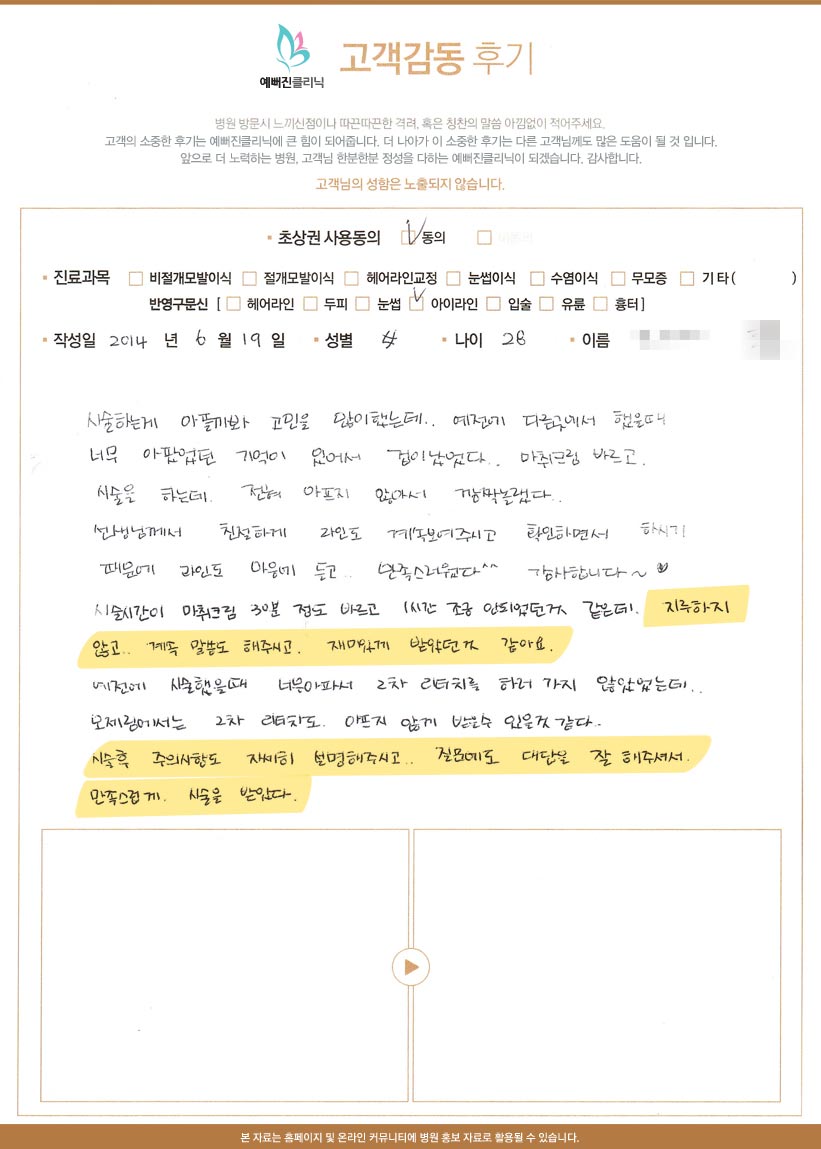 예뻐진클리닉
고객감동 후기
병원 방문시 느끼신점이나 따끈따끈한 격려, 혹은 칭찬의 말씀 아낌없이 적어주세요.
고객의 소중한 후기는 예뻐진클리닉에 큰 힘이 되어줍니다. 더 나아가 이 소중한 후기는 다른 고객님께도 많은 도움이 될 것 입니다.
앞으로 더 노력하는 병원, 고객님 한분한분 정성을 다하는 예뻐진클리닉이 되겠습니다. 감사합니다.
고객님의 성함은 노출되지 않습니다.
초상권 사용동의 동의
진료과목 비절개모발이식 절개모발이식 헤어라인교정 눈썹이식 수염이식 무모증 기타( )
반영구문신 [ 헤어라인 두피 눈썹 아이라인 입술 유륜 흉터 ]
작성일 2014 년 6 월 19 일 성별 女 나이 28 이름
시술하는게 아플까봐 고민을 많이했는데.. 예전에 다른곳에서 했을때
너무 아팠었던 기억이 있어서 겁이났었다.. 마취크림 바르고.
시술을 하는데. 전혀 아프지 않아서 깜짝놀랬다..
선생님께서 친절하게 라인도 계속보여주시고 확인하면서 하시기
때문에 라인도 마음에 들고.. 만족스러웠다^^ 감사합니다~♥
시술시간이 마취크림 30분 정도 바르고 1시간 조금 안되었던것 같은데. 지루하지
않고.. 계속 말씀도 해주시고. 재미있게 받았던것 같아요.
예전에 시술했을때 너무아파서 2차 리터치를 하러 가지 않았었는데..
모제림에서는 2차 리터치도. 아프지 않게 받을수 있을것 같다..
시술후 주의사항도 자세히 설명해주시고.. 질문에도 대답을 잘 해주셔서.
만족스럽게. 시술을 받았다.
본 자료는 홈페이지 및 온라인 커뮤니티에 병원 홍보 자료로 활용될 수 있습니다.